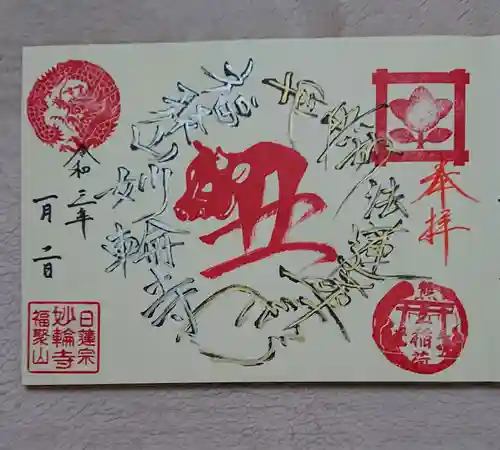 奉拝
南無
法蓮華
丑
妙輪寺
令和三年
一月二日
日蓮宗
妙輪寺
福聚山
稲荷